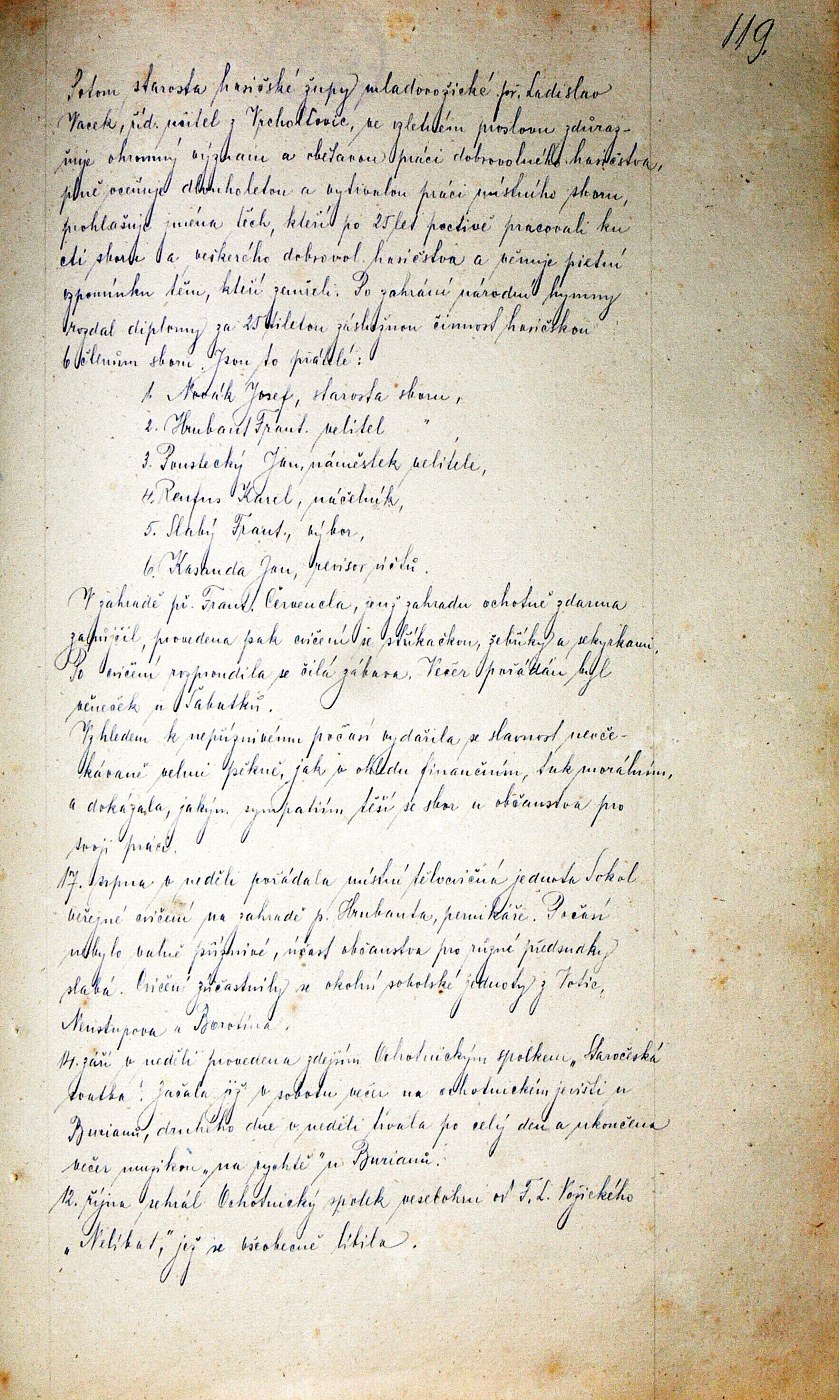 119.
Potom starosta hasičské župy mladovožické př. Ladislav
Vacek, říd. učitel z Vrcholtovic, ve vzletném proslovu zdůraz-
ňuje ohromný význam a obětavou práci dobrovolného hasičstva,
plně oceňuje dlouholetou a vytrvalou práci místního sboru,
prohlašuje jména těch, kteří po 25 let poctivě pracovali ku
cti sboru a veškerého dobrovol. hasičstva a věnuje pietní
vzpomínku těm, kteří zemřeli. Po zahrání národní hymny
rozdal diplomy za 25tiletou záslužnou činnost hasičskou
6 členům sboru. Jsou to přátelé:
1. Novák Josef, starosta sboru,
2. Hrubant Frant. velitel "
3. Poustecký Jan, náměstek velitele,
4. Renfus Karel, náčelník,
5. Slabý Frant., výbor,
6. Kasanda Jan, revisor účtů.
V zahradě př. Frant. Červencla, jenž zahradu ochotně zdarma
zapůjčil, provedena pak cvičení se stříkačkou, žebříky a sekyrkami.
Po cvičení rozproudila se čilá zábava. Večer pořádán byl
věneček u Šabatků.
Vzhledem k nepříznivému počasí vydařila se slavnost neoče-
kávaně velmi pěkně, jak v ohledu finančním, tak morálním,
a dokázala, jakým sympatiím těší se sbor u občanstva pro
svoji práci.
17. srpna v neděli pořádala místní tělocvičná jednota Sokol
veřejné cvičení na zahradě p. Hrubanta, perníkáře. Počasí
nebylo valně příznivé, účast občanstva pro různé předsudky
slabá. Cvičení zúčastnily se okolní sokolské jednoty z Votic,
Neustupova a Borotína.
14. září v neděli provedena zdejším Ochotnickým spolkem „Staročeská
svatba". Začala již v sobotu večer na ochotnickém jevišti u
Burianů, druhého dne v neděli trvala po celý den a ukončena
večer muzikou „na rychtě" u Burianů.
12. října sehrál Ochotnický spolek veselohru od F. L. Vožického
„Nelíbat," jež se všeobecně líbila.